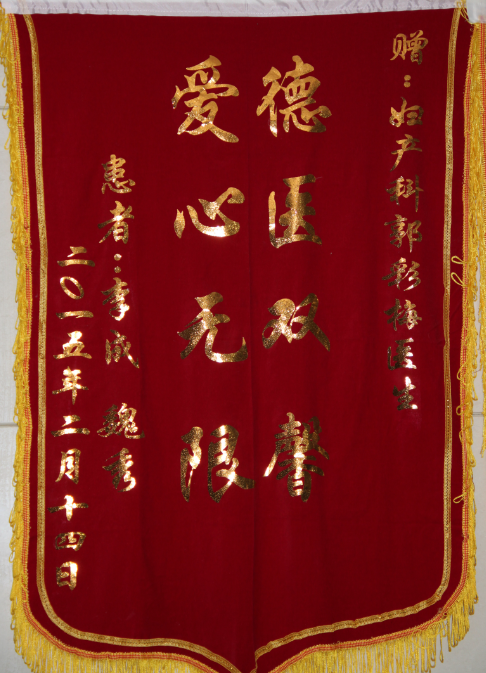 赠：妇产科郭彩梅医生
德医双馨
爱心无限
患者：李成 魏秀
二〇一五年二月十四日